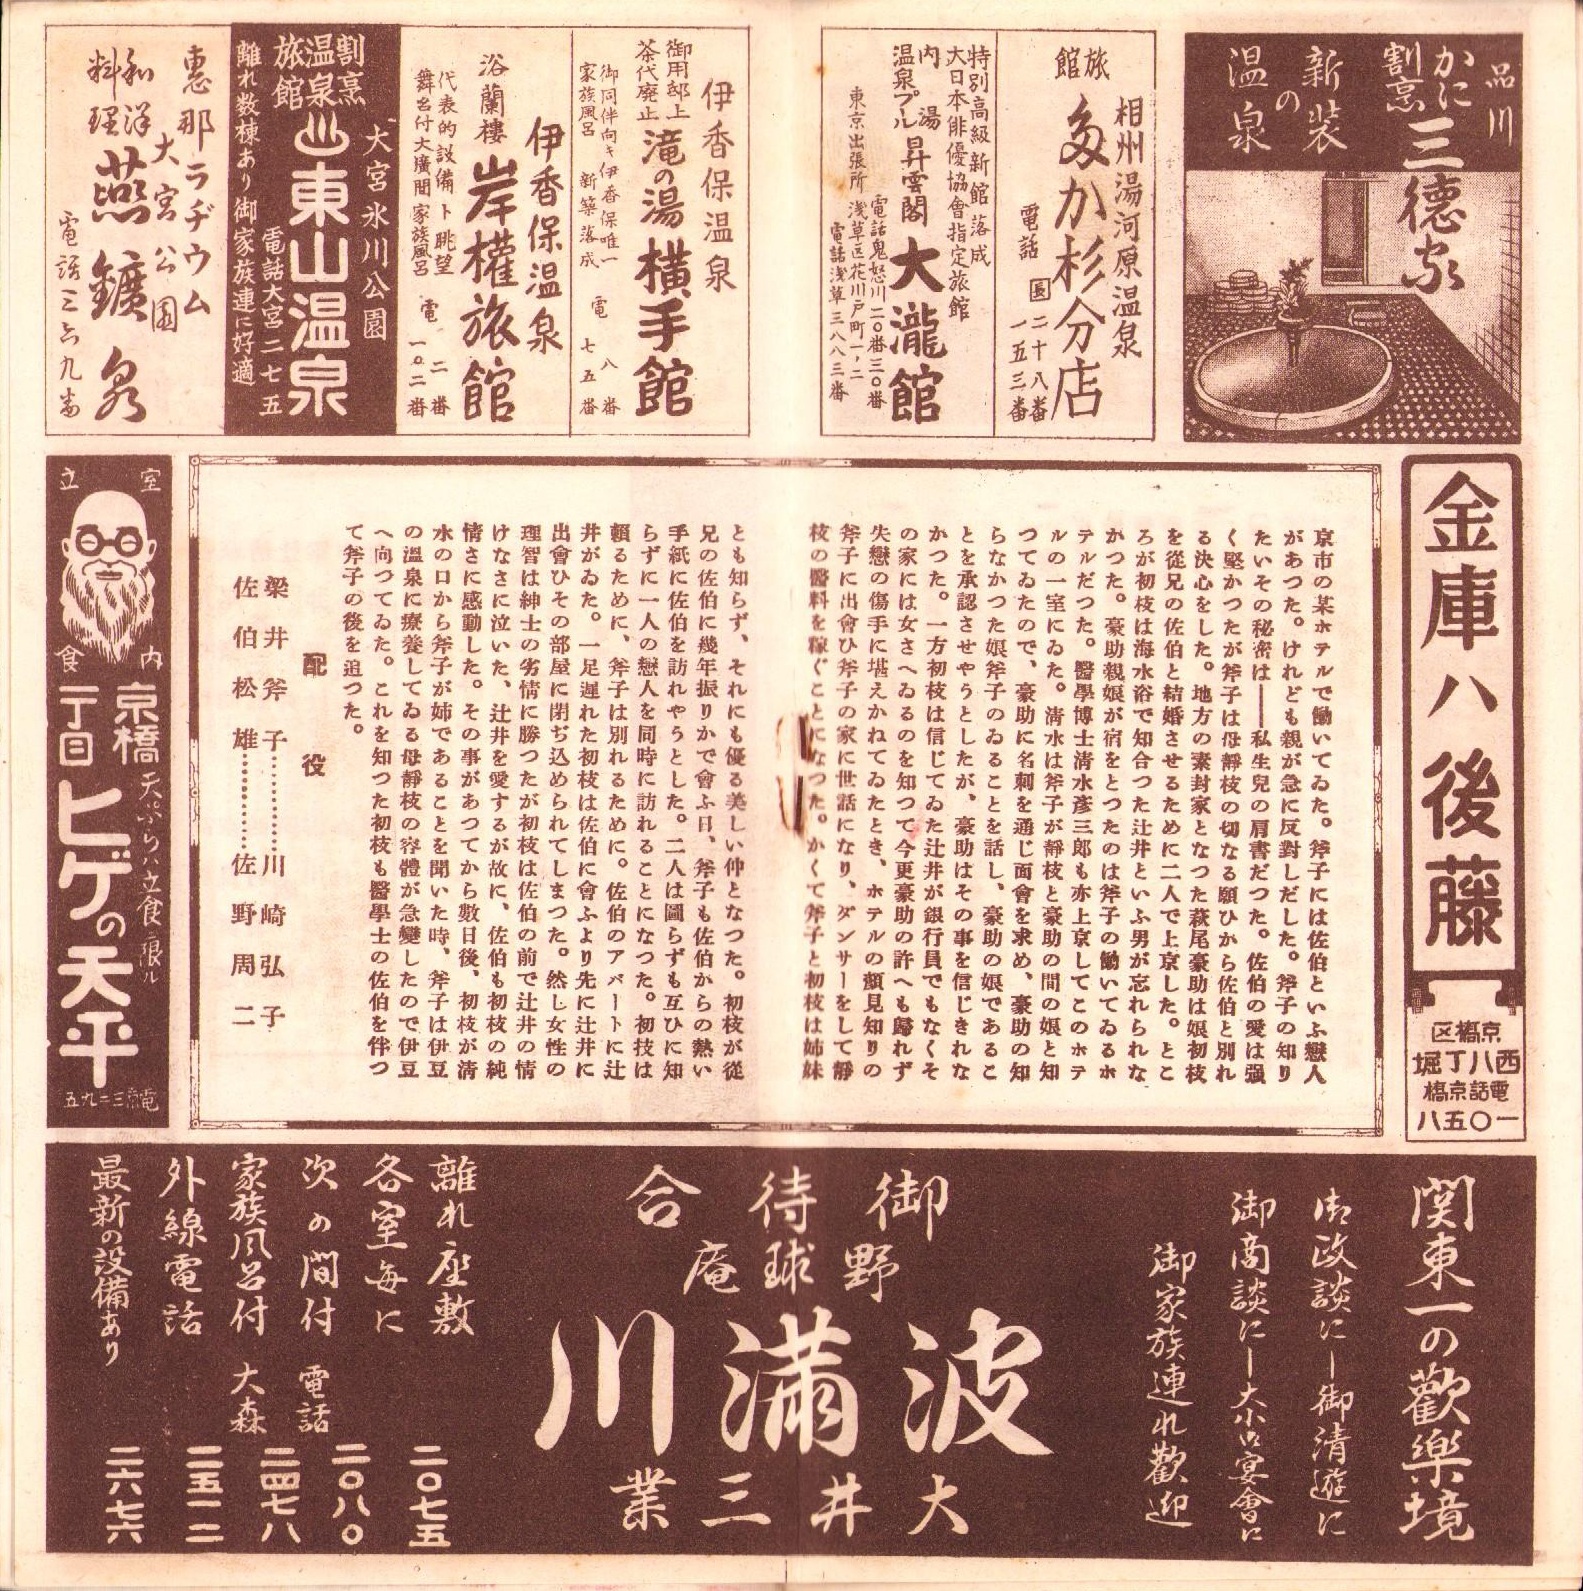 品川
かに割烹
三徳家
新装の温泉
旅館
相州湯河原温泉
電話 長 二十八番
一五三番
特別高級新館落成
大日本俳優協會指定旅館
内湯
温泉プール
昇雲閣 大瀧館
電話鬼怒川二〇番三〇番
東京出張所 浅草区花川戸町一ノ二
電話浅草三八八三番
伊香保温泉
御用邸上
茶代廃止
滝の湯 横手館
御同伴向キ伊香保唯一
家族風呂 新築落成
電 八番
七五番
伊香保温泉
浴蘭樓 岸權旅館
代表的設備ト眺望
舞台付大廣間家族風呂
電 二番
一〇二番
大宮氷川公園
割烹
温泉
旅館
東山温泉
電話大宮二七五
離れ数棟あり御家族連に好適
恵那ラヂウム
大宮公園
和洋
料理
燕鑛泉
電話三六九番
金庫ハ後藤
京橋区
西八丁堀
電話京橋
一〇五八
京市の某ホテルで働いてゐた。斧子には佐伯といふ戀人
があつた。けれども親が急に反對しだした。斧子の知り
たいその秘密は――私生兒の肩書だつた。佐伯の愛は强
く堅かつたが斧子は母靜枝の切なる願ひから佐伯と別れ
る決心をした。地方の素封家となつた萩尾豪助は娘初枝
を從兄の佐伯と結婚させるために二人で上京した。とこ
ろが初枝は海水浴で知合つた辻井といふ男が忘れられな
かつた。豪助親娘が宿をとつたのは斧子の働いてゐるホ
テルだつた。醫學博士清水彦三郎も亦上京してこのホテ
ルの一室にゐた。清水は斧子が靜枝と豪助の間の娘と知
つてゐたので、豪助に名刺を通じ面會を求め、豪助の知
らなかつた娘斧子のゐることを話し、豪助の娘であるこ
とを承認させやうとしたが、豪助はその事を信じきれな
かつた。一方初枝は信じてゐた辻井が銀行員でもなくそ
の家には女さへゐるのを知つて今更豪助の許へも歸れず
失戀の傷手に堪えかねてゐたとき、ホテルの顏見知りの
斧子に出會ひ斧子の家に世話になり、ダンサーをして靜
枝の醫料を稼ぐことになつた。かくて斧子と初枝は姉妹
とも知らず、それにも優る美しい仲となつた。初枝が從
兄の佐伯に幾年振りかで會ふ日、斧子も佐伯からの熱い
手紙に佐伯を訪れやうとした。二人は圖らずも互ひに知
らずに一人の戀人を同時に訪れることになつた。初枝は
賴るために、斧子は別れるために。佐伯のアパートに辻
井がゐた。一足遅れた初枝は佐伯に會ふより先に辻井に
出會ひその部屋に閉ぢ込められてしまつた。然し女性の
理智は紳士の劣情に勝つたが初枝は佐伯の前で辻井の情
けなさに泣いた、辻井を愛するが故に、佐伯も初枝の純
情さに感動した。その事があつてから數日後、初枝が清
水の口から斧子が姉であることを聞いた時、斧子は伊豆
の温泉に療養してゐる母靜枝の容體が急變したので伊豆
へ向つてゐた。これを知つた初枝も醫學士の佐伯を伴つ
て斧子の後を追つた。
配役
梁井斧子…………川崎弘子
佐伯松雄…………佐野周二
室内立食
京橋一丁目
天ぷらハ立食ニ限ル
ヒゲの天平
関東一の歡樂境
御政談に―御清遊に
御商談に―大小御宴會に
御家族連れ歡迎
御待合
野球庵
波満川
大井三業
離れ座敷
各室毎に
次の間付
家族風呂付
外線電話
最新の設備あり
電話
大森
二〇七五
二〇八〇
二四七八
二五一二
二六七六